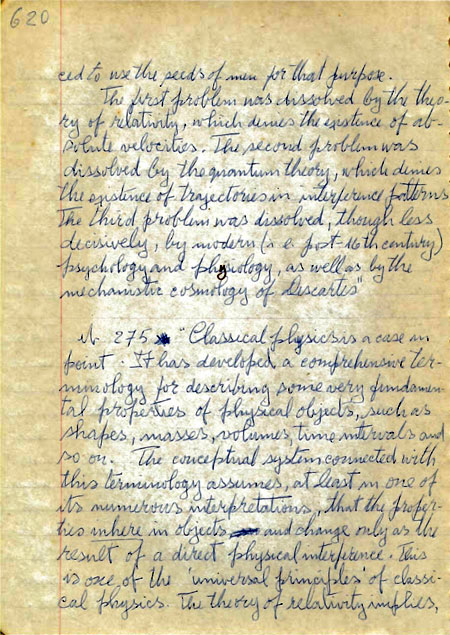 620
ced to use the seeds of men for that purpose.
The first problem was dissolved by the theo-
ry of relativity, which denies the existence of ab-
solute velocities. The second problem was
dissolved by the quantum theory, which denies
the existence of trajectories in interference patterns
The third problem was dissolved, though less
decisively, by modern (i.e. post 16th century)
psychology and physiology, as well as by the
mechanistic cosmology of Descartes"
275 "Classical physics is a case in
point. It has developed a comprehensive ter-
minology for describing some very fundamen
tal properties of physical objects, such as
shapes, masses, volumes, time intervals and
so on. The conceptual system connected with
this terminology assumes, at least in one of
its numerous interpretations, that the proper-
ties inhere in objects and change only as the
result of a direct physical interference. This
is one of the 'universal principles' of classi-
cal physics. The theory of relativity implies,